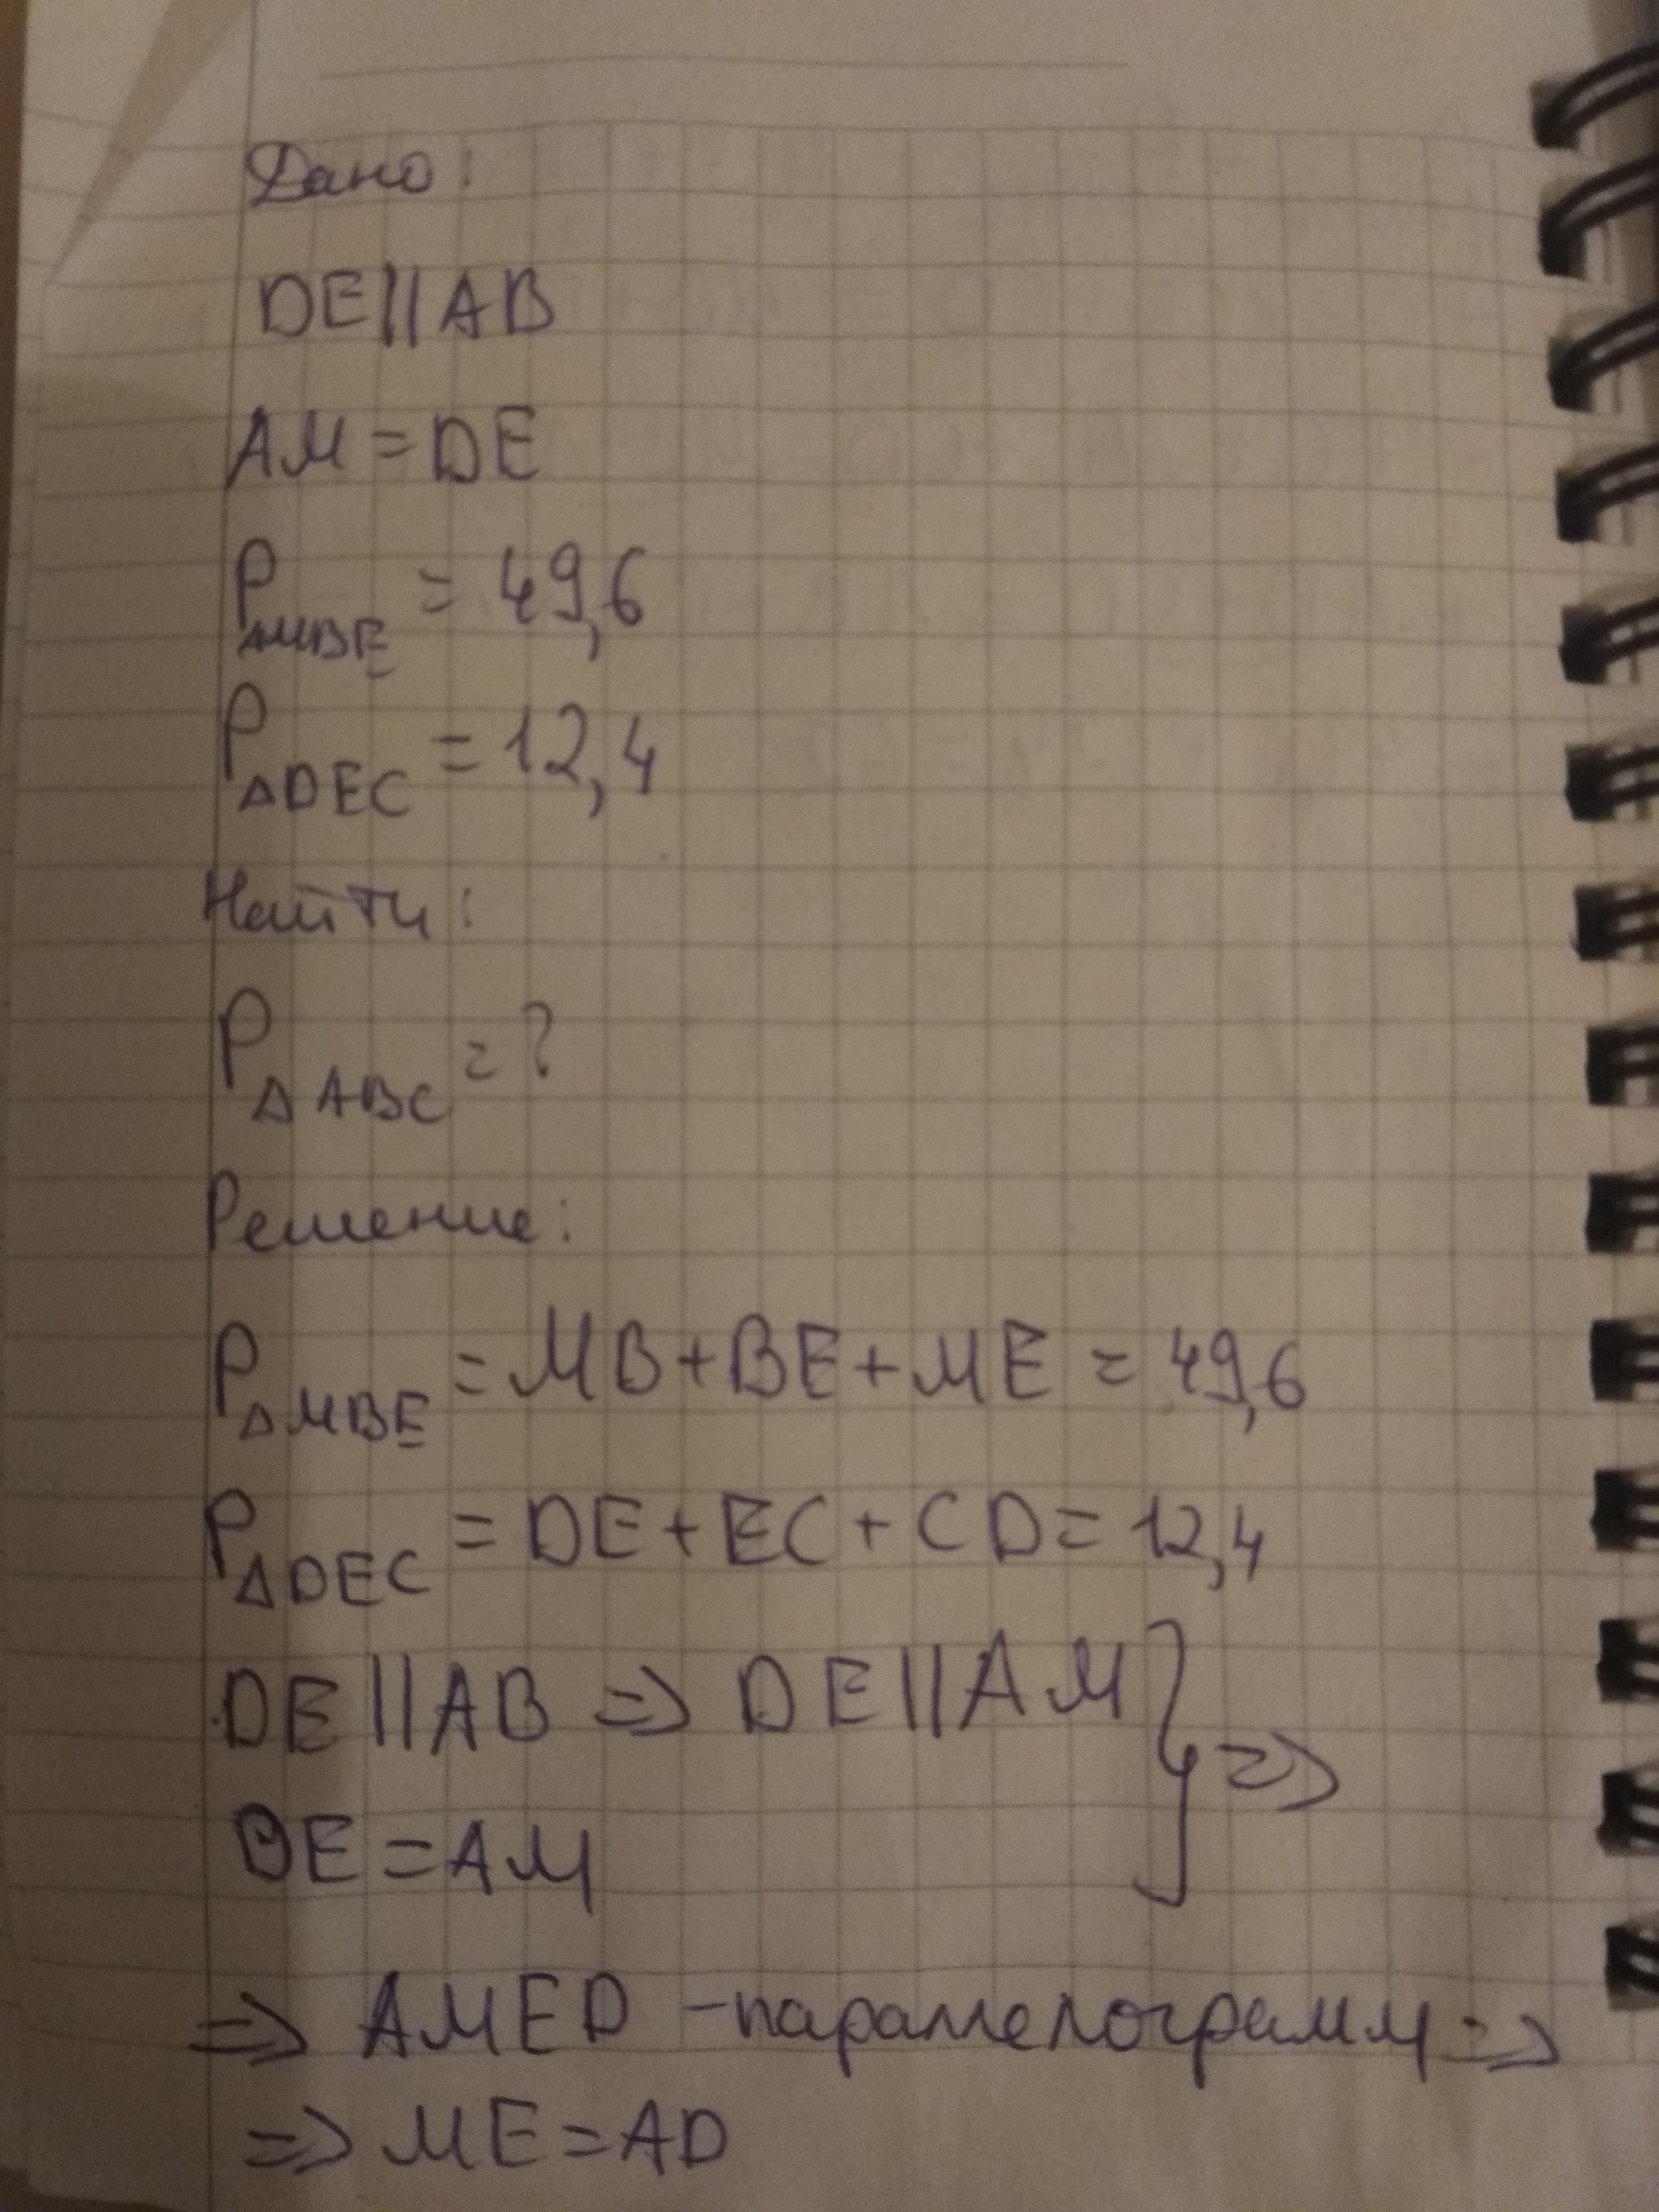 Дано:
DE||AB
AM=DE
P△MBE = 49,6
P△DEC = 12,4
Найти:
P△ABC = ?
Решение:
P△MBE = MB+BE+ME = 49,6
P△DEC = DE+EC+CD = 12,4
DE||AB => DE||AM } =>
DE=AM
=> AMED - параллелограмм =>
=> ME=AD